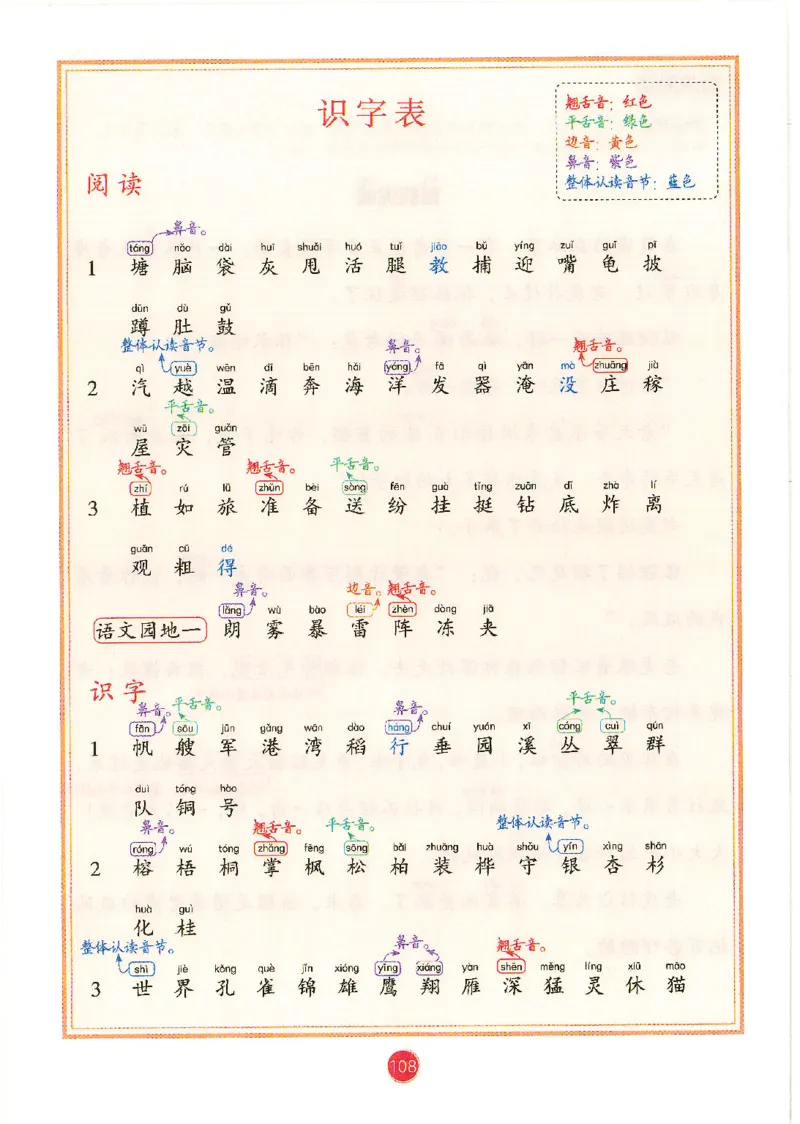 识字表
翘舌音：红色
平舌音：绿色
边音：黄色
鼻音：紫色
整体认读音节：蓝色
阅读
鼻音。
táng nǎo dài huī shuǎi huó tuǐ jiāo bǔ yíng zuǐ guī pī
1 塘 脑 袋 灰 甩 活 腿 教 捕 迎 嘴 龟 披
dūn dù gǔ
蹲 肚 鼓
整体认读音节。 鼻音。 翘舌音。
qì yuè wēn dī bēn hǎi yáng fā qì yān mò zhuāng jià
2 汽 越 温 滴 奔 海 洋 发 器 淹 没 庄 稼
平舌音。
wū zāi guǎn
屋 灾 管
翘舌音。 翘舌音。 平舌音。
zhí rú lǚ zhǔn bèi sòng fēn guà tǐng zuān dǐ zhà lí
3 植 如 旅 准 备 送 纷 挂 挺 钻 底 炸 离
guān cū dé
观 粗 得
鼻音。 边音。 翘舌音。
lǎng wù bào léi zhèn dòng jiā
语文园地一 朗 雾 暴 雷 阵 冻 夹
识字
鼻音。 平舌音。 鼻音。 平舌音。
fān sōu jūn gǎng wān dào háng chuí yuán xī cóng cuì qún
1 帆 艘 军 港 湾 稻 行 垂 园 溪 丛 翠 群
duì tóng hào
队 铜 号
鼻音。 翘舌音。 平舌音。 整体认读音节。
róng wú tóng zhǎng fēng sōng bǎi zhuāng huà shǒu yín xìng shān
2 榕 梧 桐 掌 枫 松 柏 装 桦 守 银 杏 杉
huà guì
化 桂
整体认读音节。 鼻音。 翘舌音。
shì jiè kǒng què jǐn xióng yīng xiáng yàn shēn měng líng xiū māo
3 世 界 孔 雀 锦 雄 鹰 翔 雁 深 猛 灵 休 猫
108